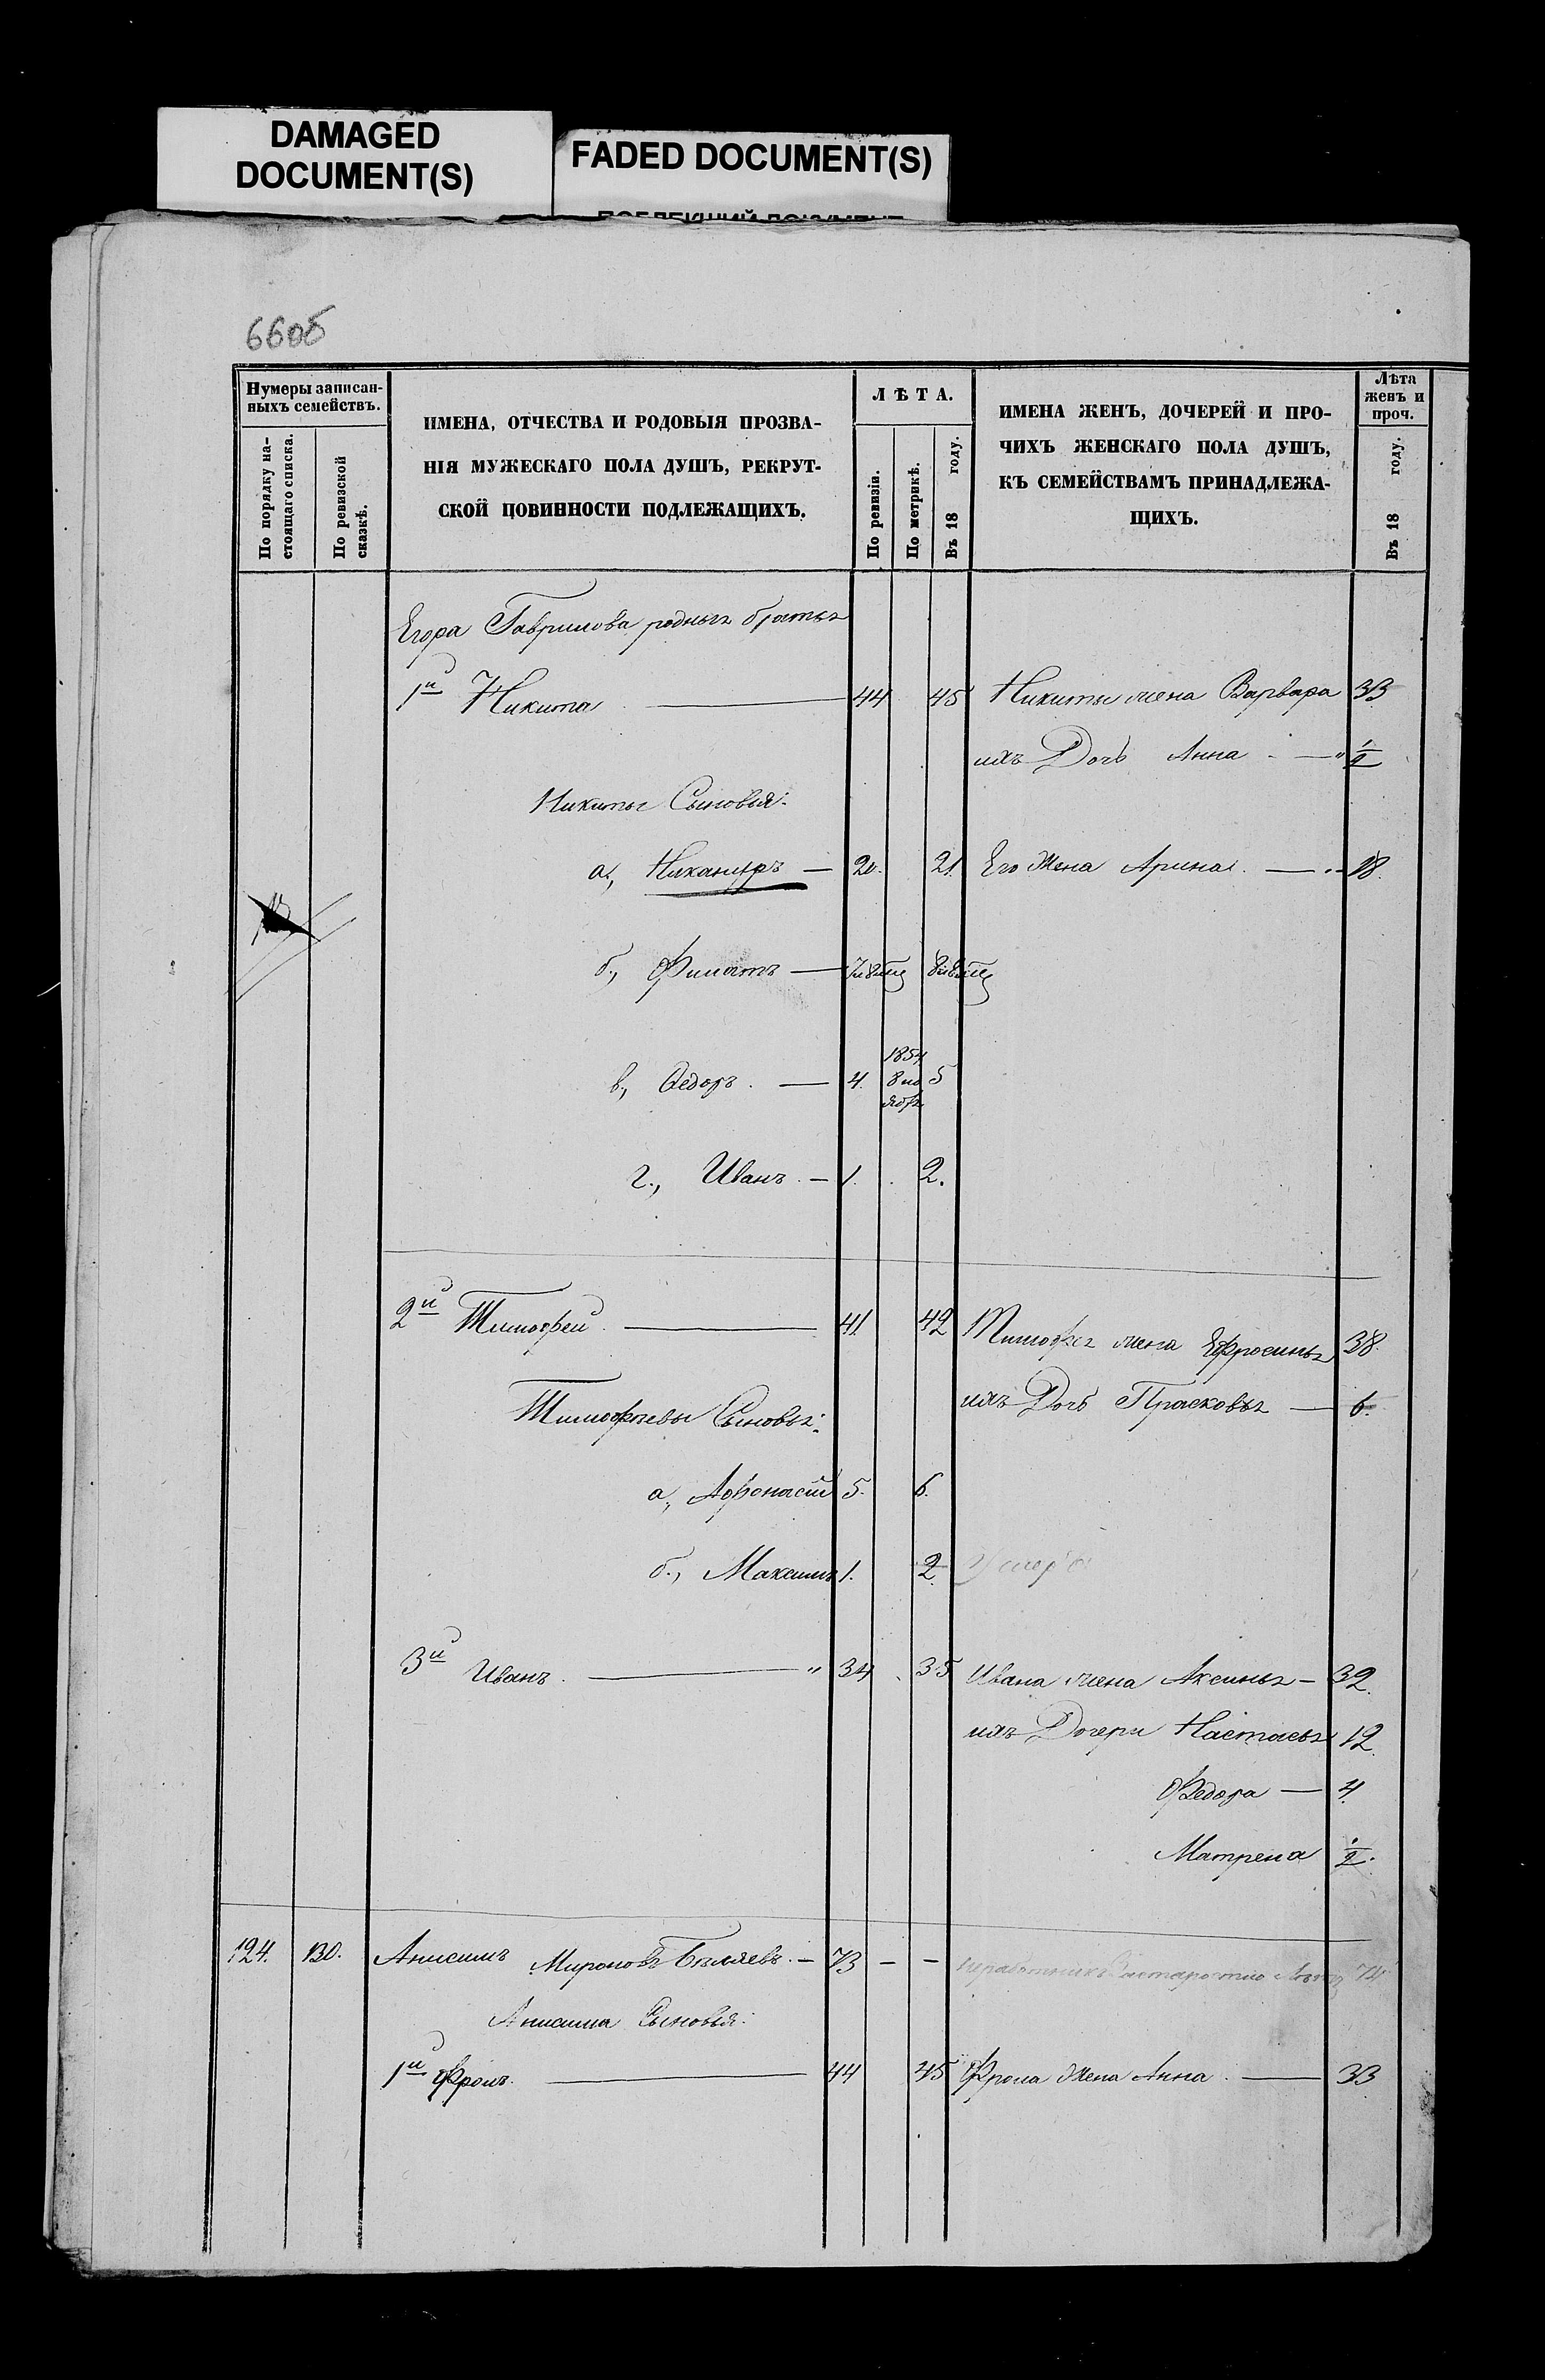 DAMAGED
DOCUMENT(S)
FADED DOCUMENT(S)
660б
Нумеры записан-
ныхъ семействъ.
По порядку на-
стоящаго списка.
По ревизской
сказкѣ.
ИМЕНА, ОТЧЕСТВА И РОДОВЫЯ ПРОЗВА-
НІЯ МУЖЕСКАГО ПОЛА ДУШЪ, РЕКРУТ-
СКОЙ ПОВИННОСТИ ПОДЛЕЖАЩИХЪ.
ЛѢТА.
По ревизіи.
По метрикѣ.
Въ 18 году.
ИМЕНА ЖЕНЪ, ДОЧЕРЕЙ И ПРО-
ЧИХЪ ЖЕНСКАГО ПОЛА ДУШЪ,
КЪ СЕМЕЙСТВАМЪ ПРИНАДЛЕЖА-
ЩИХЪ.
Лѣта
женъ и
проч.
Въ 18 году.
Егора Гаврилова родные братья
1й Никита — 44 45 Никиты жена Варвара 33
ихъ Дочь Анна — " 1/2
Никиты Сыновья:
а., Никаноръ — 20. 21. Его Жена Арина. — 18.
б., Филатъ —
в., Федоръ. — 4. 1854 8 но ября 5
г., Иванъ. — 1. 2.
2й Тимофей. — 41 42 Тимофея жена Ефросинья 38.
ихъ Дочь Прасковья — 6.
Тимофеевы Сыновья:
а., Афонасій 5. 6.
б., Максимъ 1. 2. Умеръ
3й Иванъ. — " 34 35 Ивана жена Аксинья — 32.
ихъ Дочери Настасья 12.
Федора — 4.
Матрена 1/2.
124. 130. Анисимъ Мироновъ Бѣляевъ. — 73 — — 74
Анисима Сыновья:
1й Фролъ. — 44 45 Фрола Жена Анна. — 33